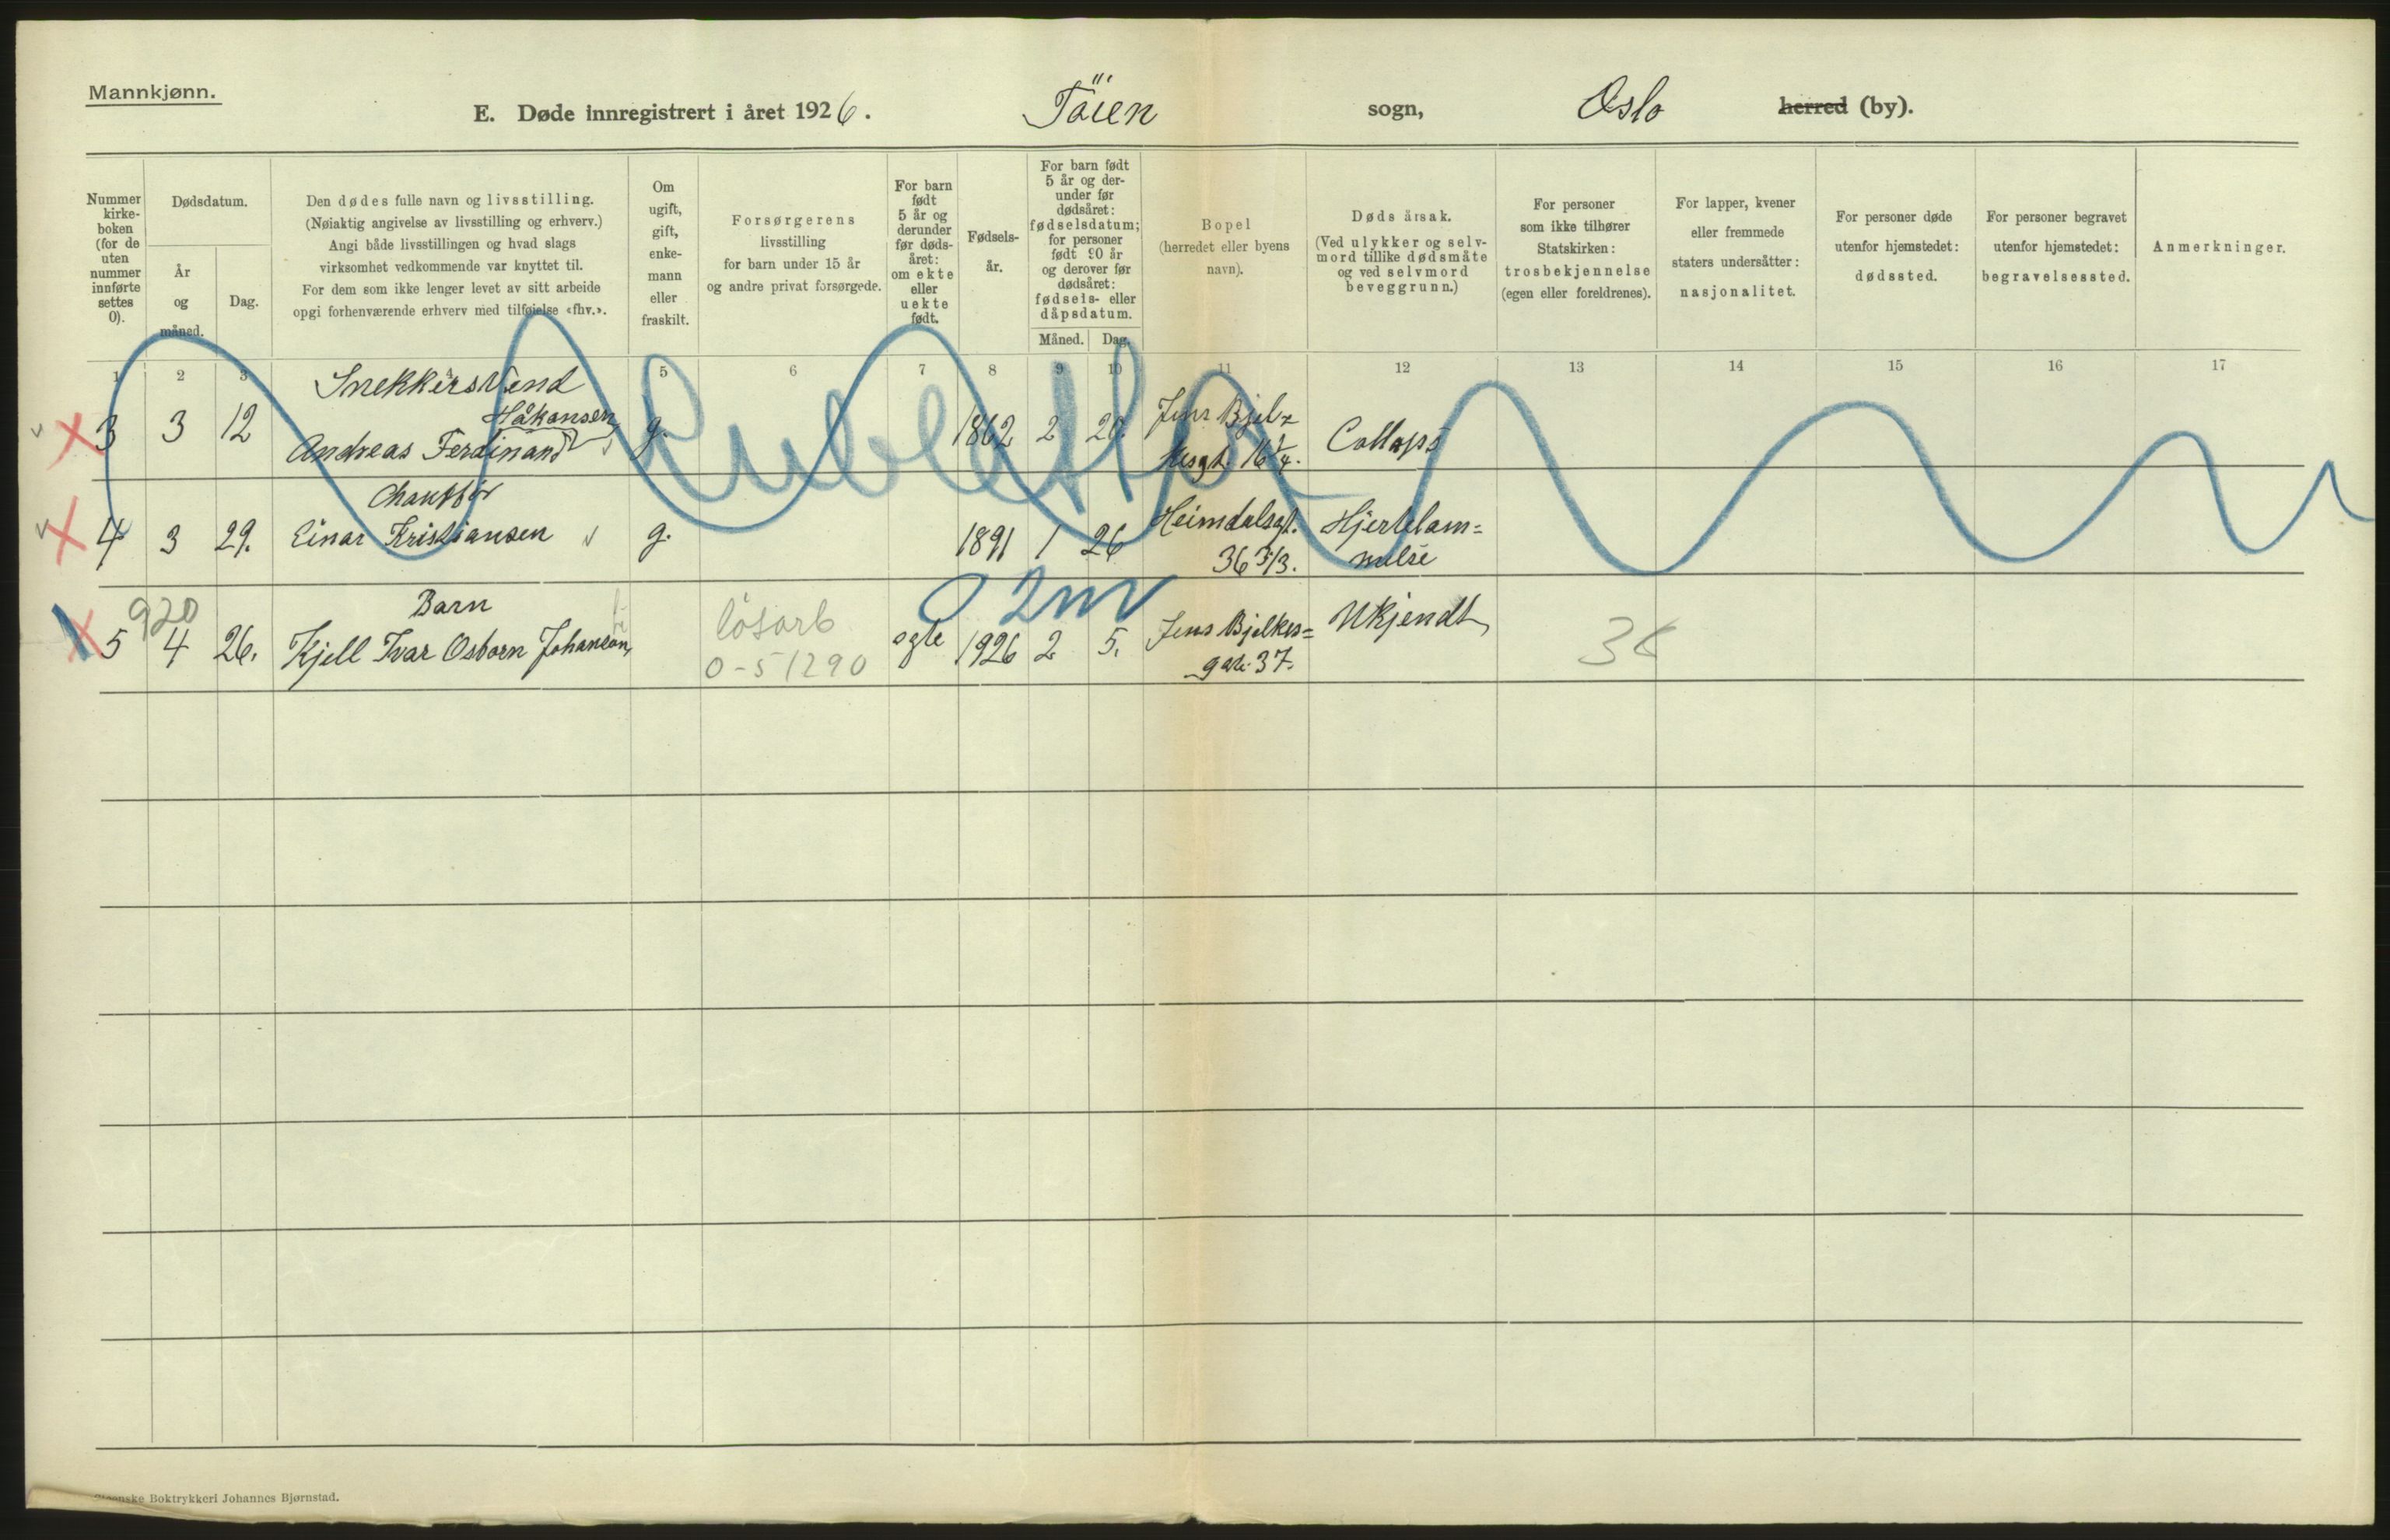 Mannkjønn.
E. Døde innregistrert i året 1926. Töien sogn, Oslo herred (by).
Nummer
kirke-
boken
(for de
uten
nummer
innførte
settes
0).
Dødsdatum.
År
og
måned.
Dag.
Den dødes fulle navn og livsstilling.
(Nøiaktig angivelse av livsstilling og erhverv.)
Angi både livsstillingen og hvad slags
virksomhet vedkommende var knyttet til.
For dem som ikke lenger levet av sitt arbeide
opgi forhenværende erhverv med tilføielse «fhv.».
Om
ugift,
gift,
enke-
mann
eller
fraskilt.
Forsørgerens
livsstilling
for barn under 15 år
og andre privat forsørgede.
For barn
født
5 år og
derunder
før døds-
året:
om ekte
eller
uekte
født.
Fødsels-
år.
For barn født
5 år og der-
under før
dødsåret:
fødselsdatum;
for personer
født 90 år
og derover før
dødsåret:
fødsels- eller
dåpsdatum.
Måned. Dag.
Bopel
(herredet eller byens
navn).
Dødsårsak.
(Ved ulykker og selv-
mord tillike dødsmåte
og ved selvmord
beveggrunn.)
For personer
som ikke tilhører
Statskirken:
trosbekjennelse
(egen eller foreldrenes).
For lapper, kvener
eller fremmede
staters undersåtter:
nasjonalitet.
For personer døde
utenfor hjemstedet:
dødssted.
For personer begravet
utenfor hjemstedet:
begravelsessted.
Anmerkninger.
1 2 3 4 5 6 7 8 9 10 11 12 13 14 15 16 17
Snekkersvend
Håkansen
3 3 12 Andreas Ferdinand g. 1862 2 20. Jens Bjel=
kesgt. 16 Collaps
Chauffør
4 3 29. Einar Kristiansen g. 1891 1 26 Heimdalsgt. Hjertelam=
36 3/3. melse
2m
920 Barn
5 4 26. Kjell Ivar Osborn Johanson, løsarb egte 1926 2 5. Jens Bjelkes= Ukjendt
0-51290 gate 37.
Steenske Boktrykkeri Johannes Bjørnstad.